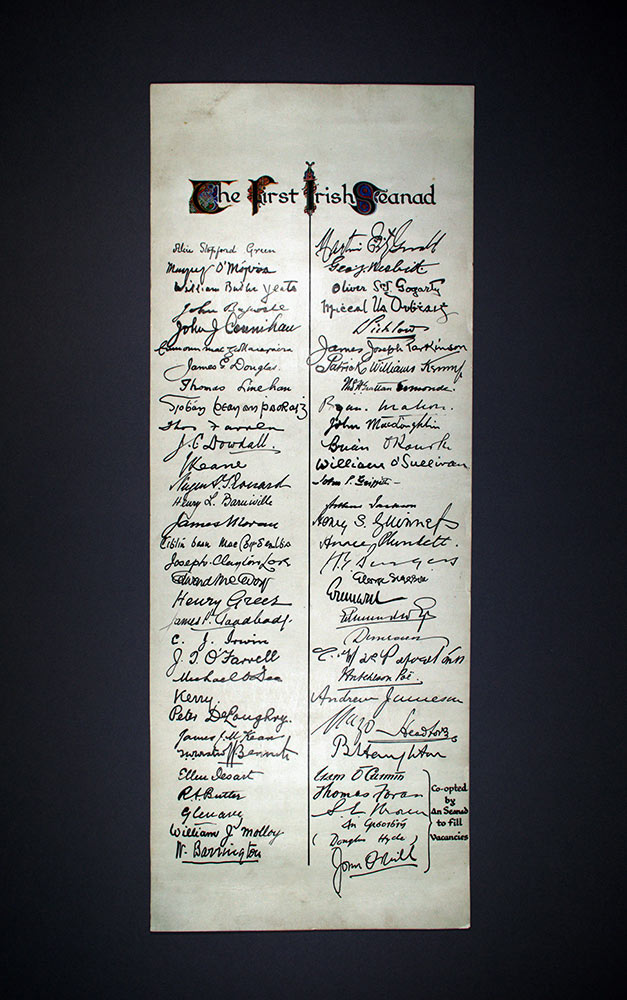 The First Irish Seanad
Alice Stopford Green
William Butler Yeats
John Bagwell
John J Counihan
James G Douglas.
Thomas Linehan
Thos Farren
J. C. Dowdall.
J Keane
Henry L. Barniville
James Moran
Joseph Clayton Love
Edward MacEvoy
Henry Greer
James P. Goodbody.
C. J. Irwin
J. T. O'Farrell
Michael O'Dea
Kerry.
Peter DeLoughry.
James J. McKean
Bennett
Ellen Desart
R. A. Butler
Glenavy
William J. Molloy
W. Barrington
Martin FitzGerald
George Nesbitt
Oliver St J. Gogarty
Wicklow
James Joseph Parkinson
Patrick Williams Kenny
Thos. H. Grattan Esmonde.
Bryan. Mahon.
John MacLoughlin
Brian O'Rourke
William O'Sullivan
John P. Griffith
Arthur Jackson
Henry S. Guinness
Horace Plunkett.
George Sigerson
Dunraven
Hutcheson Poë.
Andrew Jameson
Mayo Headfort
B Haughton
Thomas Foran
S. L. Brown
An Craoibhín
(Douglas Hyde)
John O'Neill
Co-opted
by
An Seanad
to fill
Vacancies